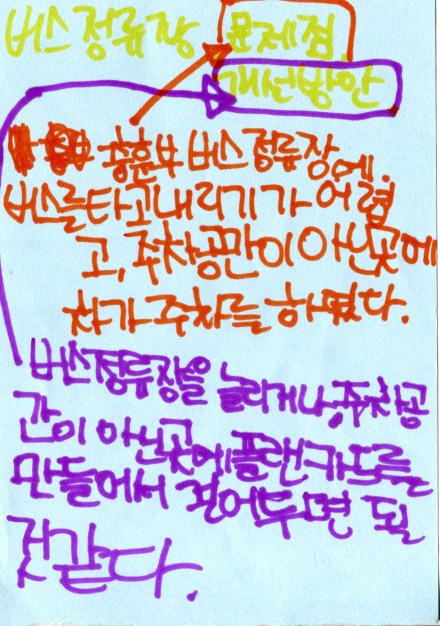 버스정류장 문제점.
개선방안
충훈부 버스정류장에.
버스를타고내리기가 어렵
고, 주차공간이 아닌곳에
차가 주차를 하였다.
버스정류장을 늘리거나, 주차공
간이 아닌곳에플랜카드를
만들어서 걸어두면 될
것같다.